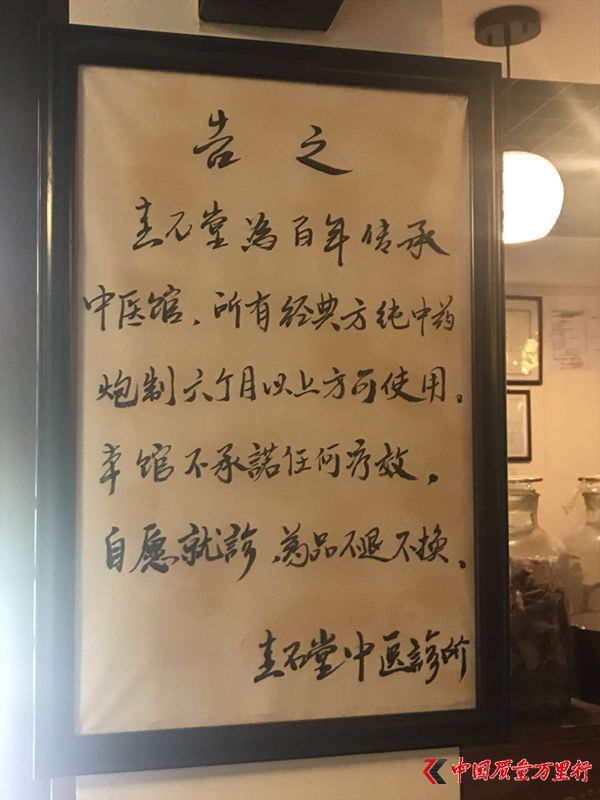 告之
圭石堂為百年传承
中医馆、所有经典方纯中药
炮制六个月以上方可使用。
本馆不承諾任何疗效，
自愿就診，药品不退不换。
圭石堂中医診所
中国质量万里行